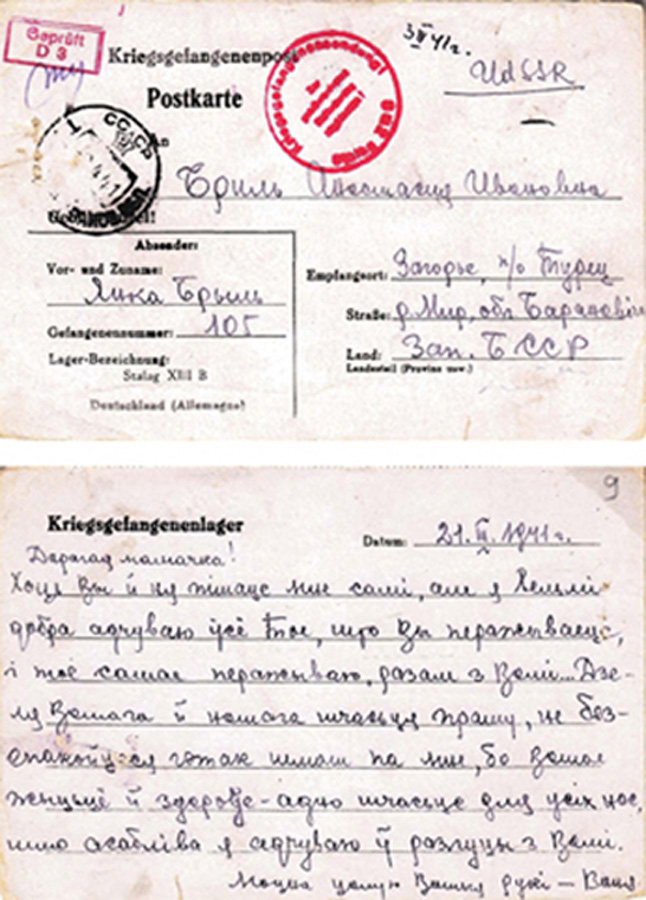 Geprüft
D 3
3 III 41г.
Kriegsgefangenenpost
UdSSR
Postkarte
Kriegsgefangenensendung!
СССР
An
Бриль Анастасия Ивановна
Absender:
Vor- und Zuname:
Янка Брыль
Gefangenennummer: 105
Lager-Bezeichnung:
Stalag XIII B
Deutschland (Allemagne)
Empfangsort: Загорье, п/о Турец
Straße: р. Мир, обл. Баранович
Land: Зап. БССР
Landesteil (Provinz usw.)
9
Kriegsgefangenenlager
Datum: 21. 1941 г.
Дарагая мамачка!
Хоць Вы й ня пішаце мне самі, але я вельмі
добра адчуваю ўсё тое, што Вы перажываеце,
і тое самае перажываю, разам з Вамі... Дзе-
ля Вашага й нашага шчасьця прашу, не без-
спакойцеся гэтак шмат па мне, бо Вашае
жыцьцё й здароўе - адно шчасьце для ўсіх нас,
што асабліва я адчуваю ў разлуцы з Вамі.
Моцна цалую Вашыя рукі – Ваня